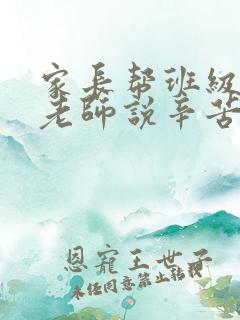 家長帮班級
老師說辛苦
恩寵王世子
未经同意禁止转载